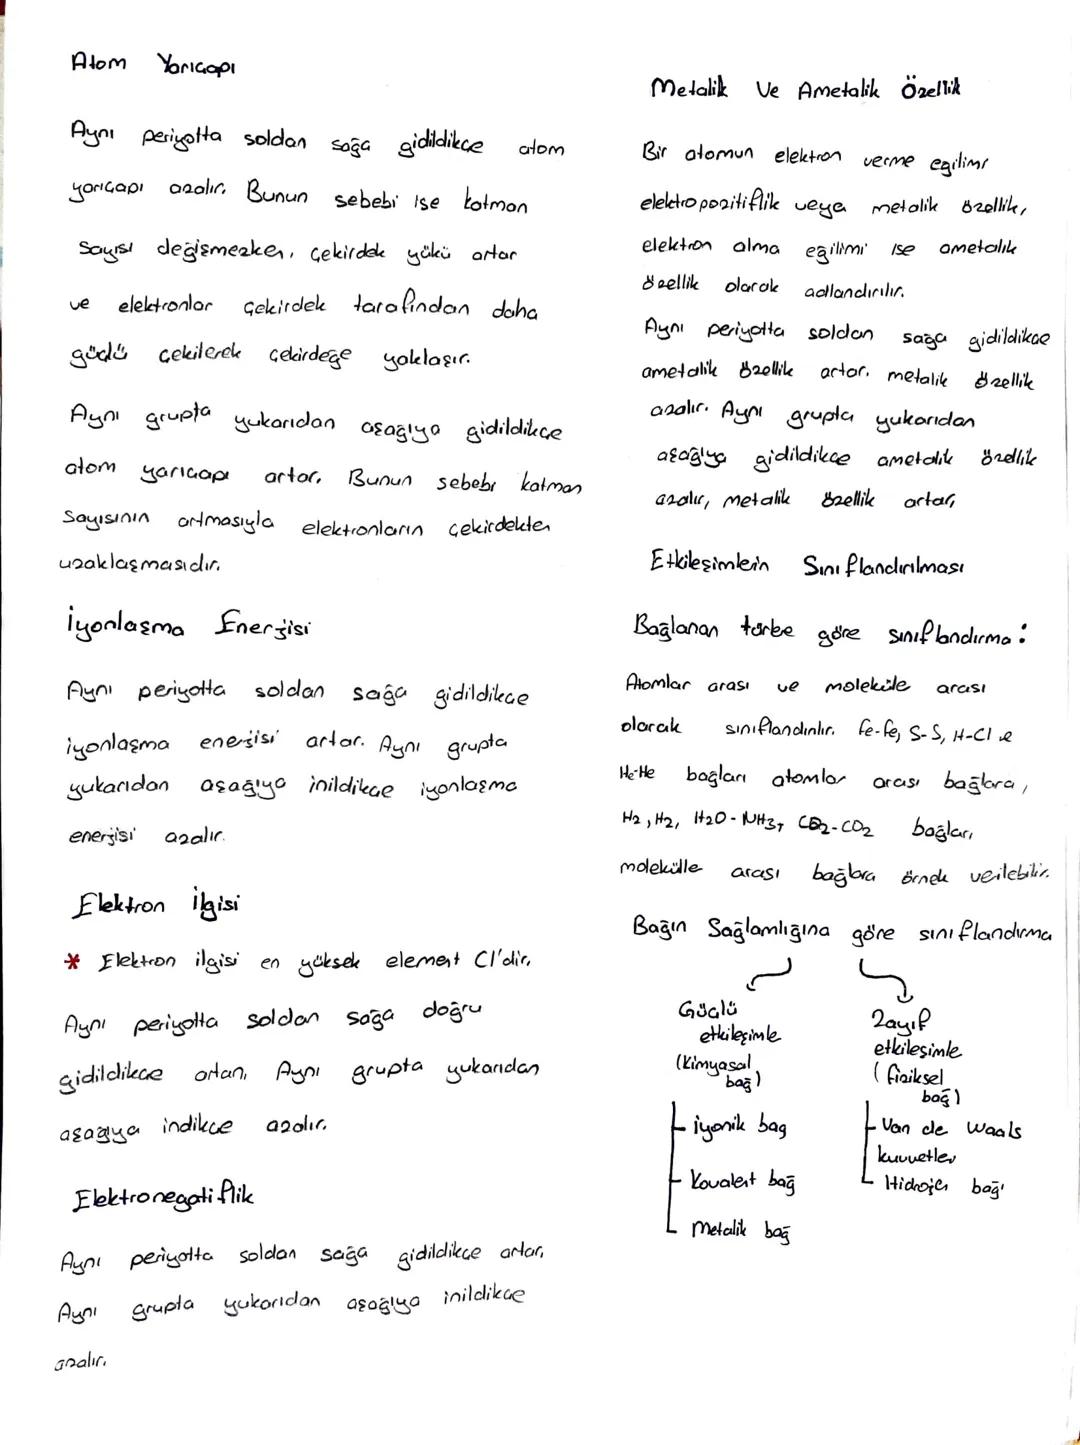 Atom Yarıçapı
Aynı periyotta soldan sağa gidildikçe atom
yarıçapı azalır. Bunun sebebi ise katman
Sayısı değişmezken, çekirdek yükü artar
ve elektronlar çekirdek tarafından daha
güçlü çekilerek çekirdeğe yaklaşır.
Aynı grupta yukarıdan aşağıya gidildikçe
atom yarıçapı artar. Bunun sebebi katman
Sayısının artmasıyla elektronların çekirdekten
uzaklaşmasıdır.
İyonlaşma Enerjisi
Aynı periyotta soldan sağa gidildikçe
iyonlaşma enerjisi artar. Aynı grupta
yukarıdan aşağıya inildikçe iyonlaşma
enerjisi azalır.
Elektron ilgisi
* Elektron ilgisi en yüksek element Cl'dir.
Aynı periyotta soldan sağa doğru
gidildikçe artarı, Aynı grupta yukarıdan
aşağıya indikçe azalır.
Elektronegatiflik
Aynı periyotta soldan sağa gidildikçe artar,
Aynı grupta yukarıdan aşağıya inildikçe
azalır.
Metalik Ve Ametalik Özellik
Bir atomun elektron verme eğilimi
elektropozitiflik veya metalik özellik,
elektron alma eğilimi ise ametalik
özellik olarak adlandırılır.
Aynı periyotta soldan sağa gidildikçe
ametalik özellik artar. metalik özellik
azalır. Aynı grupta yukarıdan
aşağıya gidildikçe ametalik özellik
azalır, metalik özellik artar,
Etkileşimlerin Sınıflandırılması
Bağlanan türe göre sınıflandırma:
Atomlar arası ve moleküller arası
olarak sınıflandırılır. Fe-Fe, S-S, H-Cl ve
He-He bağları atomlar arası bağlara,
H2, H2, H2O-NH3, CO2-CO2 bağları,
moleküller arası bağlara örnek verilebilir.
Bağın Sağlamlığına göre sınıflandırma
Güçlü
etkileşimler
(Kimyasal
bağ)
iyonik bag
Kovalent bağ
Metalik bağ
Zayıf
etkileşimler
(fiziksel
bağ)
Van der Waals
kuvvetler
Hidrojen bağı